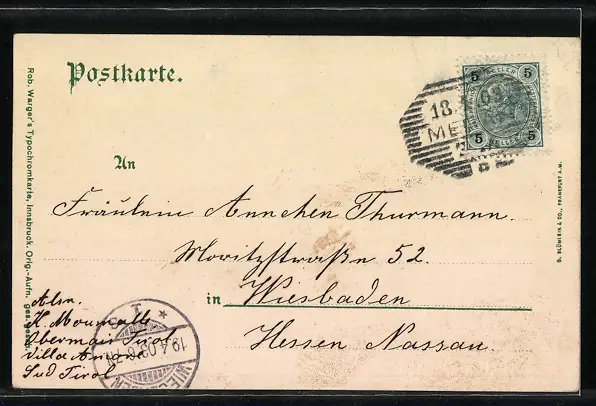 Postkarte.
5 5
18. 03
ME
5 5
An
Fräulein Annchen Thurmann.
Moritzstraße 52.
in Wiesbaden
Hessen Nassau.
Absn.
H.
Obermais Tirol
Villa
Süd Tirol
19.4.03.
Rob. Warger's Typochromkarte, Innsbruck. Orig.-Aufn. ges. gesch.
G. BLÜMLEIN & Co., FRANKFURT A.M.